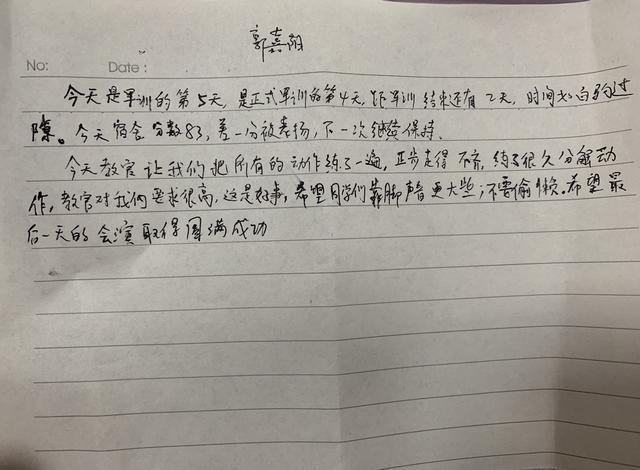 郭嘉阳
No: Date:
今天是军训的第5天,是正式军训的第4天,距军训结束还有2天,时间如白驹过
隙。今天宿舍分数83,差一分被表扬,下一次继续保持.
今天教官让我们把所有的动作练了一遍,正步走得不齐,练了很久分解动
作,教官对我们要求很高,这是好事,希望同学们靠脚声音更大些,不要偷懒.希望最
后一天的会演取得圆满成功